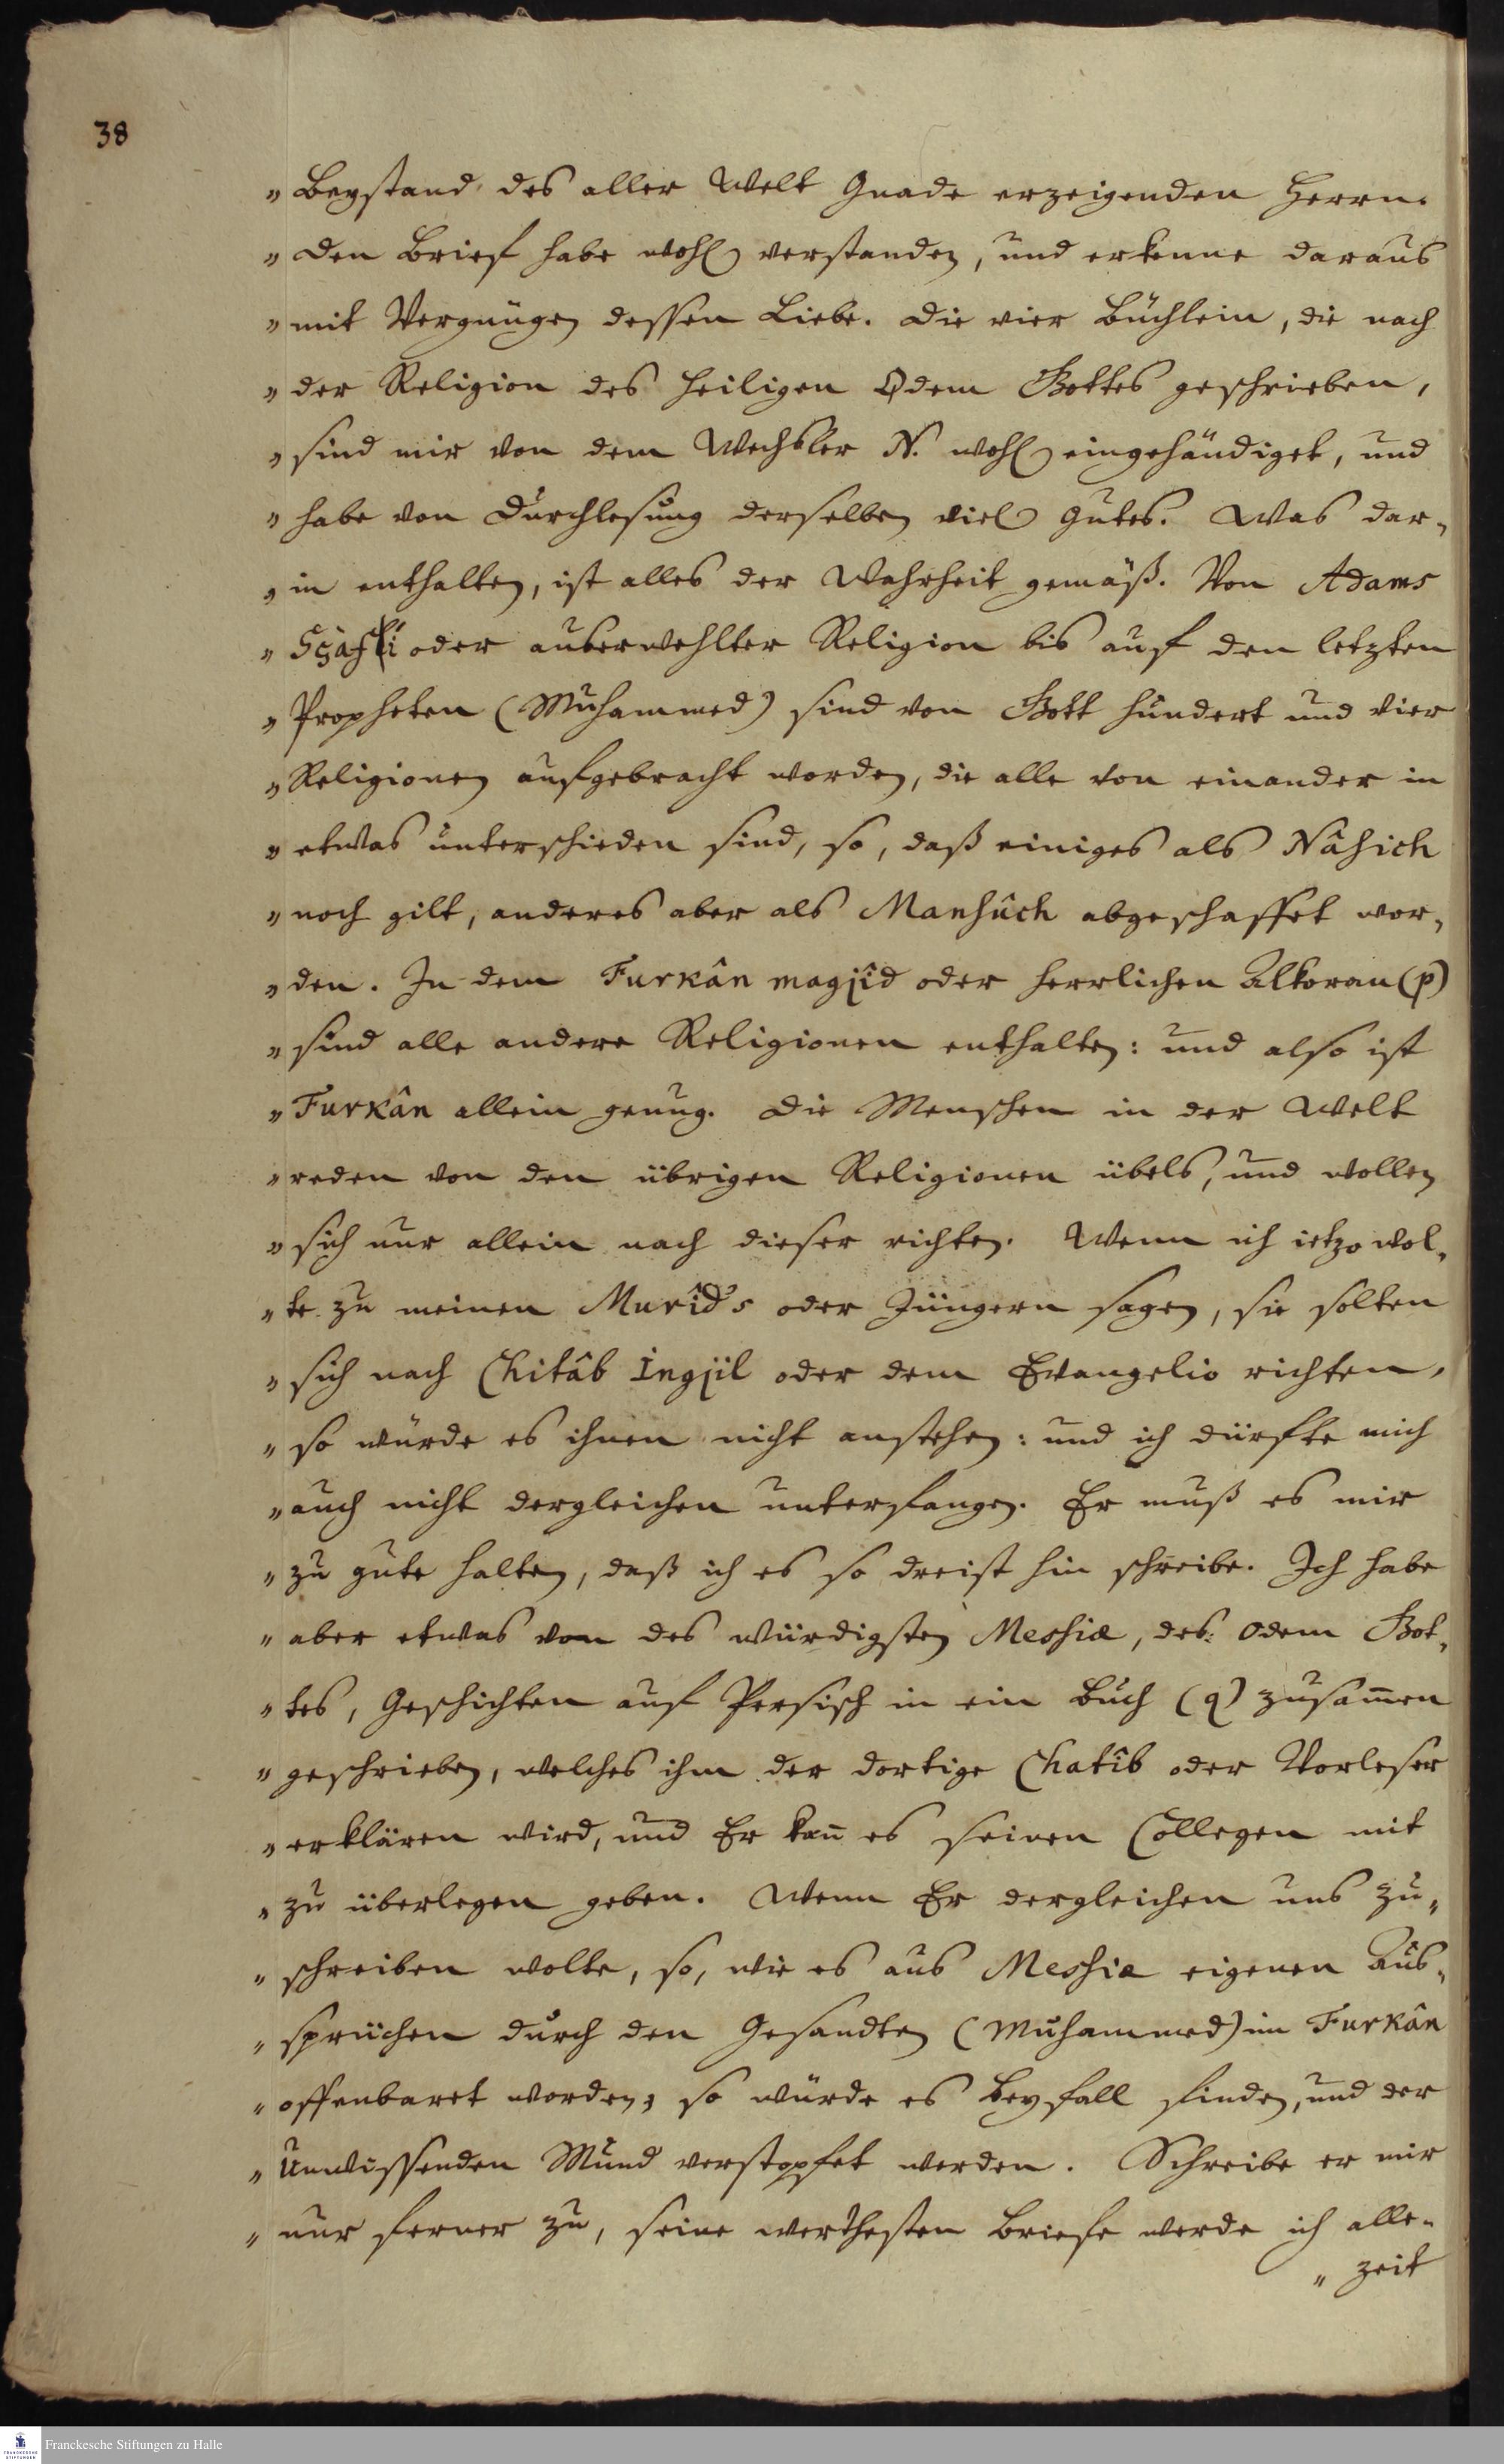 38
„ Beystand des aller Welt Gnade erzeigenden Herrn.
„ Den Brief habe wohl verstanden, und erkenne daraus
„ mit Vergnügen dessen Liebe. Die vier Büchlein, die nach
„ der Religion des heiligen Odem Gottes geschrieben,
„ sind mir von dem Wechsler N. wohl eingehändiget, und
„ habe von Durchlesung derselben viel Gutes. Was dar„
„ in enthalten, ist alles der Wahrheit gemäß. Von Adams
„ oder auserwehlter Religion bis auf den letzten
„ Propheten (Muhammed) sind von Gott hundert und vier
„ Religionen aufgebracht worden, die alle von einander in
„ etwas unterschieden sind, so, daß einiges als Nâsich
„ noch gilt, anderes aber als Mansûch abgeschaffet wor„
„ den. In dem Furkân magjîd oder herrlichen Alkoran (p)
„ sind alle andere Religionen enthalten: und also ist
„ Furkân allein genug. Die Menschen in der Welt
„ reden von den übrigen Religionen übels, und wollen
„ sich nur allein nach dieser richten. Wenn ich ietzo wol„
„ te zu meinen Murîd's oder Jüngern sagen, sie solten
„ sich nach Chitâb Ingjil oder dem Evangelio richten,
„ so würde es ihnen nicht anstehen: und ich dürfte mich
„ auch nicht dergleichen unterfangen. Er muß es mir
„ zu gute halten, daß ich es so dreist hin schreibe. Ich habe
„ aber etwas von des würdigsten Messiæ, des Odem Got„
„ tes, Geschichten auf Persisch in ein Buch (q) zusam̄en
„ geschrieben, welches ihm der dortige Chatîb oder Vorleser
„ erklären wird, und Er kan̄ es seinen Collegen mit
„ zu überlegen geben. Wenn Er dergleichen uns zu„
„ schreiben wolte, so, wie es aus Messiæ eigenen Aus„
„ sprüchen durch den Gesandten (Muhammed) im Furkân
„ offenbaret worden; so würde es Beyfall finden, und der
„ Unwissenden Mund verstopfet werden. Schreibe er mir
„ nur ferner zu, seine werthesten Briefe werde ich alle„
„ zeit
Franckesche Stiftungen zu Halle